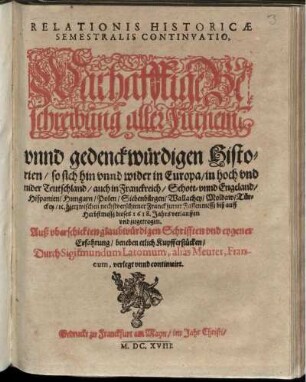 3
RELATIONIS HISTORICÆ
SEMESTRALIS CONTINVATIO,
Warhafftige Be-
schreibung aller fürnem̃en
vnnd gedenckwürdigen Histo-
rien / so sich hin vnnd wider in Europa / in hoch vnd
nider Teutschland / auch in Franckreich / Schott- vnnd Engeland /
Hispanien / Hungarn / Polen / Siebenbürgen / Wallachey / Moldaw / Tür-
ckey / ꝛc. hierzwischen nechstverschiener Franckfurter Fastenmeß biß auff
Herbstmeß dieses 1618. Jahrs verlauffen
vnd zugetragen.
Auß vberschickten glaubwürdigen Schrifften vnd eygener
Erfahrung / beneben etlich Kupfferstücken /
Durch Sigismundum Latomum, alias Meurer, Fran-
cum, verlegt vnnd continuirt.
Gedruckt zu Franckfurt am Mayn / im Jahr Christi /
M. DC. XVIII.